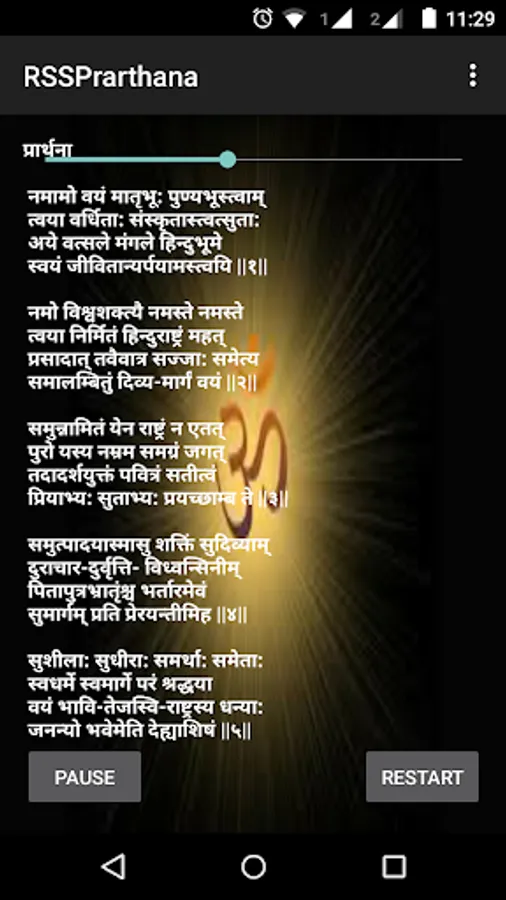 1 2 11:29
RSSPrarthana
प्रार्थना
नमामो वयं मातृभू: पुण्यभूस्त्वाम्
त्वया वर्धिता: संस्कृतास्त्वत्सुता:
अये वत्सले मंगले हिन्दुभूमे
स्वयं जीवितान्यर्पयामस्त्वयि ||१||
नमो विश्वशक्त्यै नमस्ते नमस्ते
त्वया निर्मितं हिन्दुराष्ट्रं महत्
प्रसादात् तवैवात्र सज्जा: समेत्य
समालम्बितुं दिव्य-मार्गं वयं ||२||
समुन्नामितं येन राष्ट्रं न एतत्
पुरो यस्य नम्रम समग्रं जगत्
तदादर्शयुक्तं पवित्रं सतीत्वं
प्रियाभ्य: सुताभ्य: प्रयच्छाम्ब ते ||३||
समुत्पादयास्मासु शक्तिं सुदिव्याम्
दुराचार-दुर्वृत्ति- विध्वन्सिनीम्
पितापुत्रभ्रातृंश्च भर्तारमेवं
सुमार्गम् प्रति प्रेरयन्तीमिह ||४||
सुशीला: सुधीरा: समर्था: समेता:
स्वधर्मे स्वमार्गे परं श्रद्धया
वयं भावि-तेजस्वि-राष्ट्रस्य धन्या:
जनन्यो भवेमेति देह्याशिषं ||५||
PAUSE RESTART